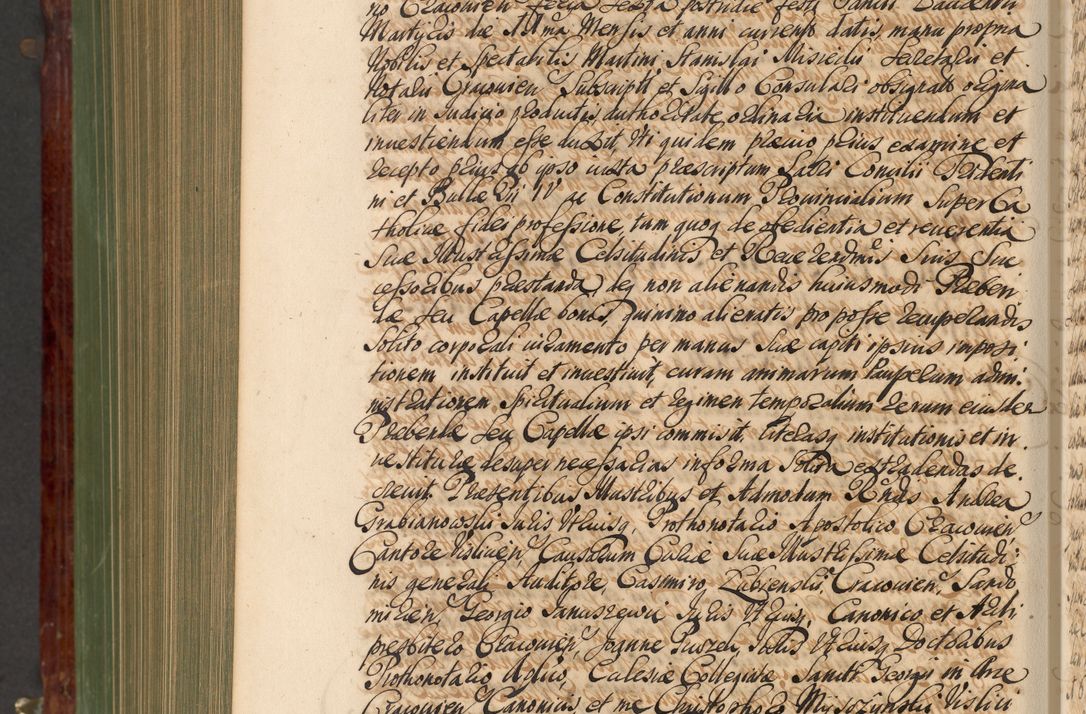 no Cracovien feria sexta postridie festi Sancti Laurentii
Martyris die Xma Mensis et anni currente datis, manu propria
Nobilis et Spectabilis Martini Stanislai Misiecki Secretarii et
Notarii Cracovien Subscripti et Sigillo Consulari obsignato origina
liter in Iudicio productis, authoritate ordinaria instituendum et
investiendum esse duxit, Uti quidem praevio prius examine et
recepto prius ab ipso iuxta praescriptum Sacri Concilii Tridenti
ni et Bullae Pii IV ac Constitutionum Provincialium super Ca
tholicae fidei professione, tum quoq de obedientia et reverentia
Suae Illustrissimae Celsitudini et Reverendmis Suis Suc
cessoribus praestanda, deq non alienandis huiusmodi Praeben
dae seu Capellae bonis, quinimo alienatis pro posse recuperandis
Solito corporali iuramento per manus Suae capiti ipsius imposi
tionem instituit et investivit, curam animarum Pauperum admi
nistrationem Spiritualium et regimen temporalium rerum eiusdem
Praebendae seu Capellae ipsi commisit, literasq institutionis et in
vestiturae desuper necessarias in forma Solita extradendas de
crevit. Praesentibus Illustribus et Admodum Rndis Andrea
Grabianowski Iuris Utriusq, Prothonotario Apostolico, Cracovien
Cantore Vislicien, Causarum Curiae Suae Illustrissimae Celsitudi
nis generali Auditore, Casimiro Lubienski, Cracovien, Sando
mirien, Georgio Januszewic Iuris Utriusq, Canonico et Archi
presbitero Cracovien, Joanne Puszet, Iuris Utriusq Doctoribus
Prothonotario Aplico, Ecclesiae Collegiatae Sancti Georgii in Arce
Cracovien Canonicus et me Christophoro Myszczynski Vislici